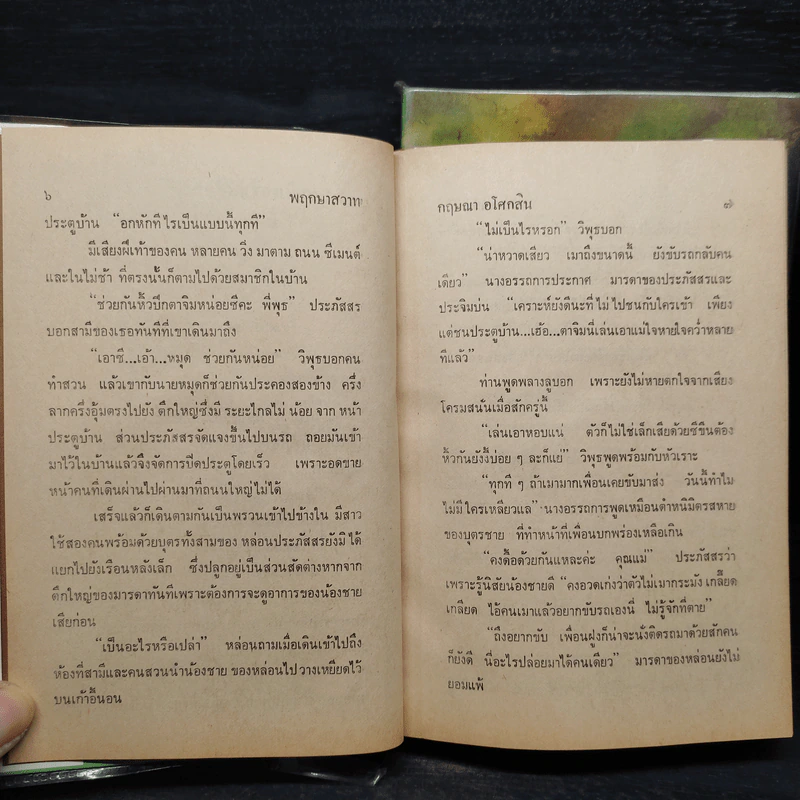 ๖ พฤกษาสวาท
ประตูบ้าน “อกหักทีไรเป็นแบบนี้ทุกที”
มีเสียงฝีเท้าของคน หลายคน วิ่ง มาตาม ถนน ซีเมนต์
และในไม่ช้า ที่ตรงนั้นก็ตามไปด้วยสมาชิกในบ้าน
“ช่วยกันหิ้วปีกตาจิมหน่อยซีคะ พี่พุธ” ประภัสสร
บอกสามีของเธอทันทีที่เขาเดินมาถึง
“เอาซี...เอ้า...หมุด ช่วยกันหน่อย” วิพุธบอกคน
ทำสวน แล้วเขากับนายหมุดก็ช่วยกันประคองสองข้าง ครึ่ง
ลากครึ่งอุ้มตรงไปยัง ตึกใหญ่ซึ่งมี ระยะไกลไม่ น้อย จาก หน้า
ประตูบ้าน ส่วนประภัสสรจัดแจงขึ้นไปบนรถ ถอยมันเข้า
มาไว้ในบ้านแล้วจึงจัดการปิดประตูโดยเร็ว เพราะอดขาย
หน้าคนที่เดินผ่านไปผ่านมาที่ถนนใหญ่ไม่ได้
เสร็จแล้วก็เดินตามกันเป็นพรวนเข้าไปข้างใน มีสาว
ใช้สองคนพร้อมด้วยบุตรทั้งสามของ หล่อนประภัสสรยังมิได้
แยกไปยังเรือนหลังเล็ก ซึ่งปลูกอยู่เป็นส่วนสัดต่างหากจาก
ตึกใหญ่ของมารดาทันทีเพราะต้องการจะดูอาการของน้องชาย
เสียก่อน
“เป็นอะไรหรือเปล่า” หล่อนถามเมื่อเดินเข้าไปถึง
ห้องที่สามีและคนสวนนำน้องชาย ของหล่อนไปวางเหยียดไว้
บนเก้าอี้นอน
กฤษณา อโศกสิน ๗
“ไม่เป็นไรหรอก” วิพุธบอก
“น่าหวาดเสียว เมาถึงขนาดนี้ ยังขับรถกลับคน
เดียว” นางอรรถการประกาศ มารดาของประภัสสรและ
ประจิมบ่น “เคราะห์ยังดีนะที่ ไม่ ไปชนกับใครเข้า เพียง
แต่ชนประตูบ้าน...เฮ้อ...ตาจิมนี่เล่นเอาแม่ใจหายใจคว่ำหลาย
ทีแล้ว”
ท่านพูดพลางลูบอก เพราะยังไม่หายตกใจจากเสียง
โครมสนั่นเมื่อสักครู่นี้
“เล่นเอาหอบแน่ ตัวก็ไม่ใช่เล็กเสียด้วยซีขืนต้อง
หิ้วกันยังงี้บ่อย ๆ ละก็แย่” วิพุธพูดพร้อมกับหัวเราะ
“ทุกที ๆ ถ้าเมามากเพื่อนเคยขับมาส่ง วันนี้ทำไม
ไม่มี ใครเหลียวแล” นางอรรถการพูดเหมือนตำหนิมิตรสหาย
ของบุตรชาย ที่ทำหน้าที่เพื่อนบกพร่องเหลือเกิน
“คงดื้อด้วยกันแหละค่ะ คุณแม่” ประภัสสรว่า
เพราะรู้นิสัยน้องชายดี “คงอวดเก่งว่าตัวไม่เมากระมัง เกลี๊ยด
เกลียด ไอ้คนเมาแล้วอยากขับรถเองนี่ ไม่รู้จักที่ตาย”
“ถึงอยากขับ เพื่อนฝูงก็น่าจะนั่งติดรถมาด้วยสักคน
ก็ยังดี นี่อะไรปล่อยมาได้คนเดียว” มารดาของหล่อนยังไม่
ยอมแพ้